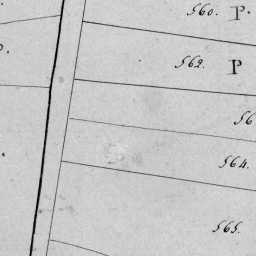 560. P.
562. P
56
564.
565.